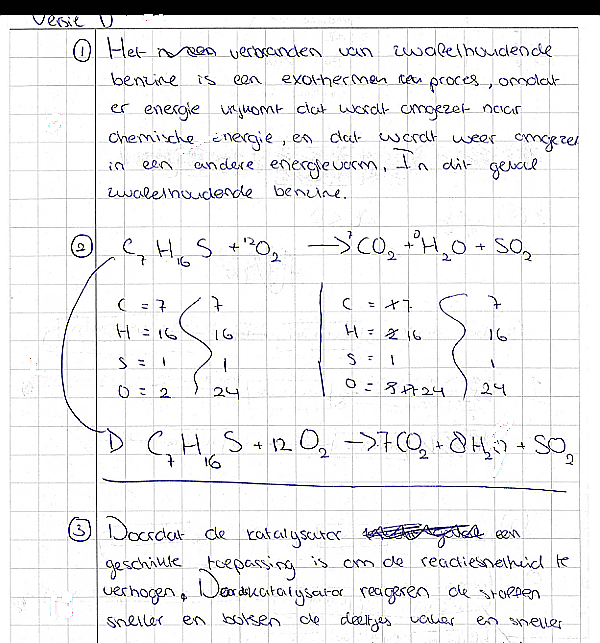 Versie D
① Het verbranden van zwavelhoudende
benzine is een exothermen proces, omdat
er energie vrijkomt dat wordt omgezet naar
chemische energie, en dat wordt weer omgezet
in een andere energievorm. In dit geval
zwavelhoudende benzine.
② C₇H₁₆S + 12O₂ → 7CO₂ + 8H₂O + SO₂
C = 7 7 C = 7 7
H = 16 16 H = 16 16
S = 1 1 S = 1 1
O = 2 24 O = 24 24
D C₇H₁₆S + 12 O₂ → 7CO₂ + 8H₂O + SO₂
③ Doordat de katalysator een
geschikte toepassing is om de reactiesnelheid te
verhogen. katalysator reageren de stoffen
sneller en botsen de deeltjes vaker en sneller